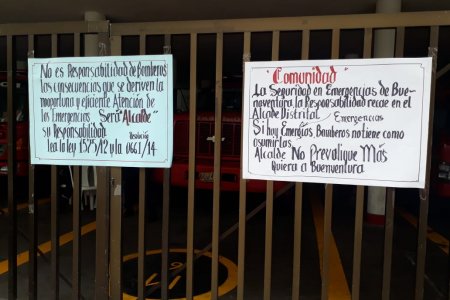 No es Responsabilidad de Bomberos
las consecuencias que se deriven la
inoportuna y eficiente Atención de
los Emergencias Será "Alcalde"
su Responsabilidad. Resolución
Lea la ley 1575/12 y la 0661/14
"Comunidad"
La Seguridad en Emergencias de Bue-
naventura la Responsabilidad recae en el
Alcalde Distrital Emergencias
Si hay Emergías Bomberos no tiene como
asumirlas
Alcalde No Prevalique Más
Quiera a Buenaventura